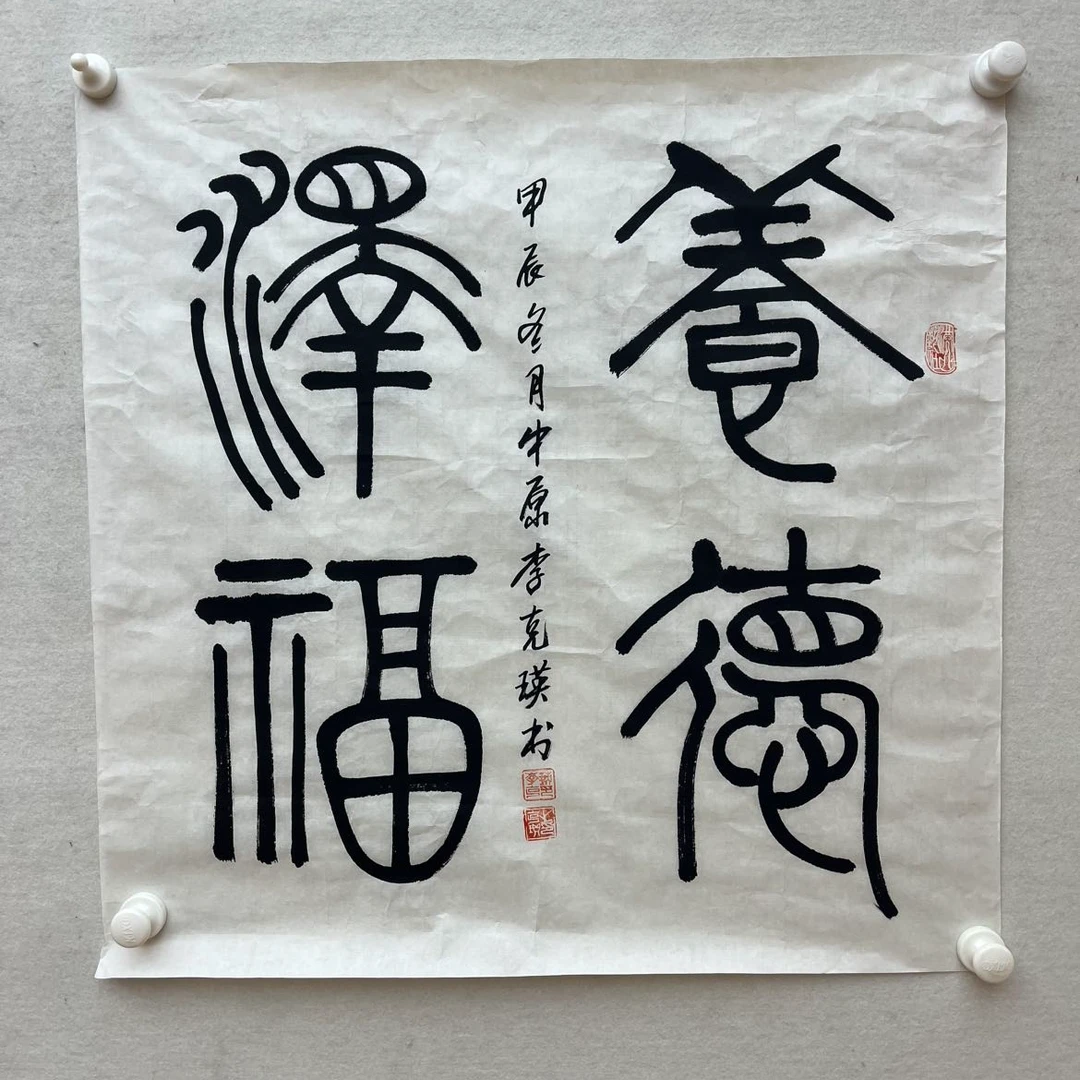 養德
甲辰冬月中原李克瑛书
澤福